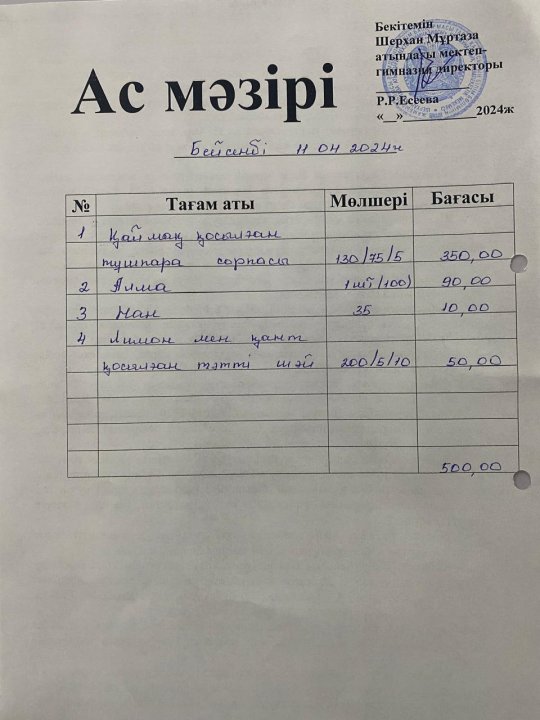 Бекітемін
Шерхан Мұртаза
атындағы мектеп-
гимназия директоры
Р.Р.Есеева
«__»__________2024ж
Ас мәзірі
Бейсенбі 11 04 2024ж
№ Тағам аты Мөлшері Бағасы
1 Қаймақ қосылған
тұшпара сорпасы 130/75/5 350,00
2 Алма 1шт(100) 90,00
3 Нан 35 10,00
4 Лимон мен қант
қосылған тәтті шәй 200/5/10 50,00
500,00